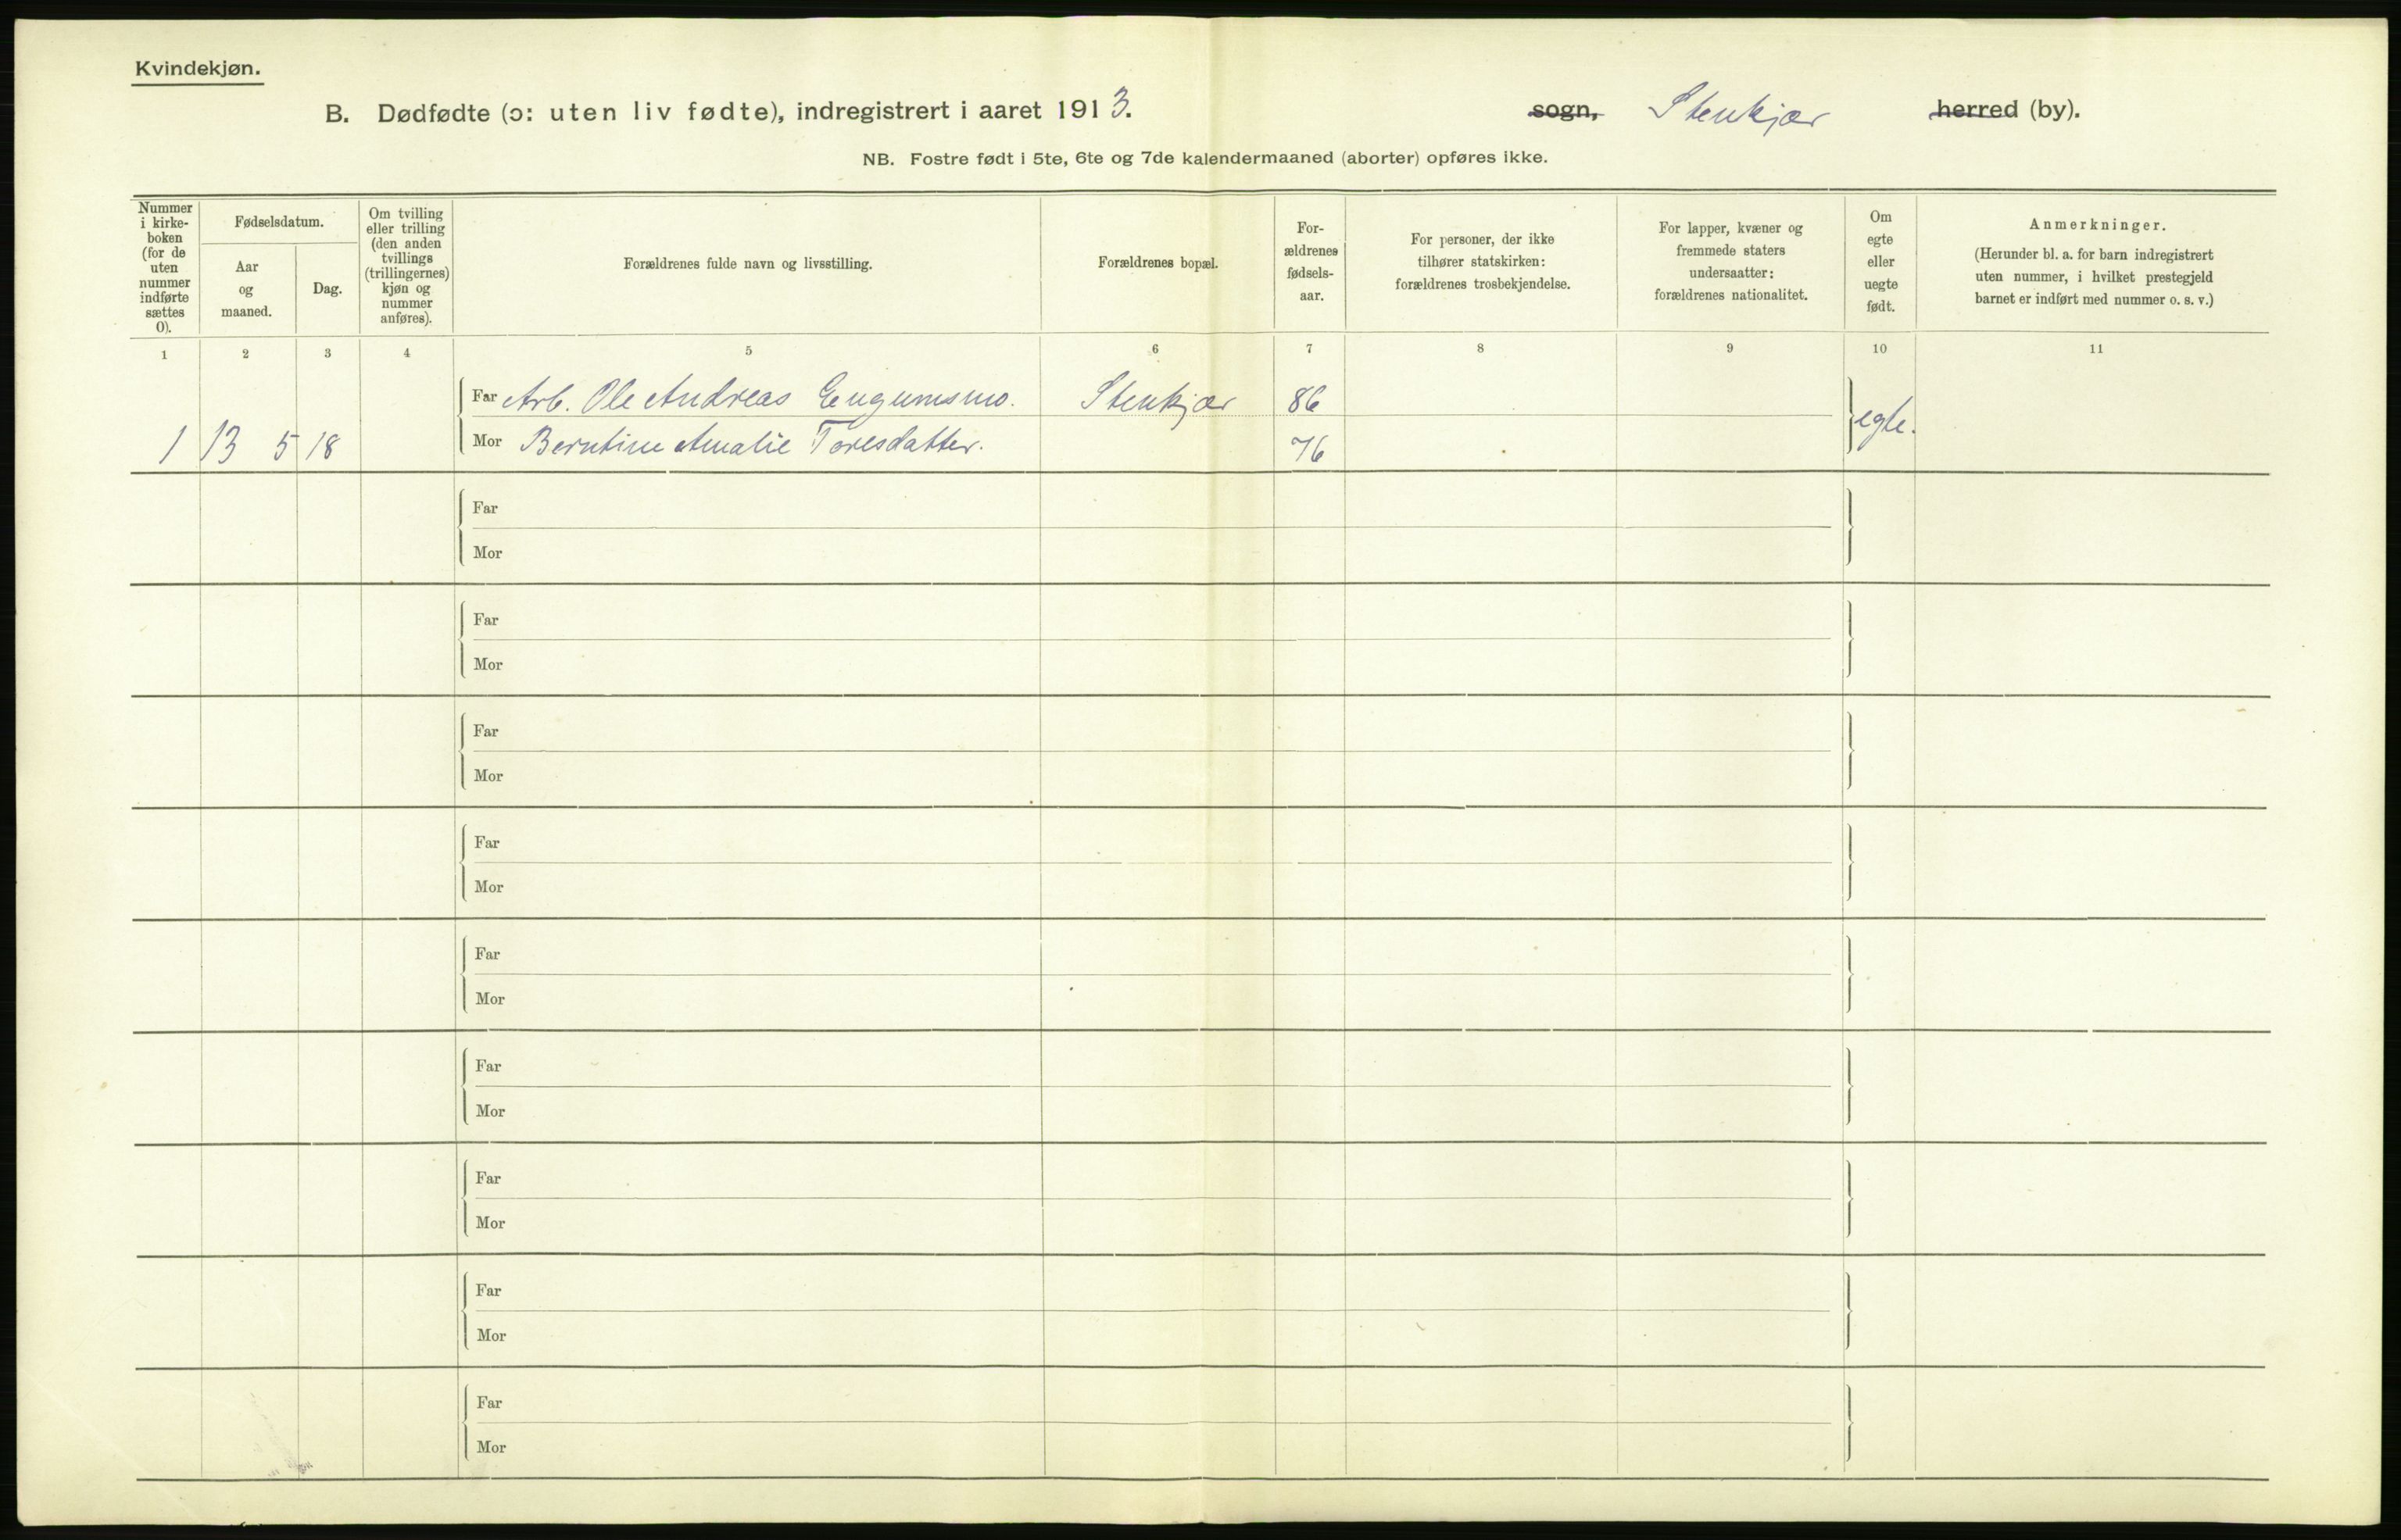 Kvindekjøn.
B. Dødfødte (ɔ: uten liv fødte), indregistrert i aaret 1913. sogn, Stenkjær herred (by).
NB. Fostre født i 5te, 6te og 7de kalendermaaned (aborter) opføres ikke.
Nummer
i kirke-
boken
(for de
uten
nummer
indførte
sættes
0).
Fødselsdatum.
Aar
og
maaned.
Dag.
Om tvilling
eller trilling
(den anden
tvillings
(trillingernes)
kjøn og
nummer
anføres).
Forældrenes fulde navn og livsstilling.
Forældrenes bopæl.
For-
ældrenes
fødsels-
aar.
For personer, der ikke
tilhører statskirken:
forældrenes trosbekjendelse.
For lapper, kvæner og
fremmede staters
undersaatter:
forældrenes nationalitet.
Om
egte
eller
uegte
født.
Anmerkninger.
(Herunder bl. a. for barn indregistrert
uten nummer, i hvilket prestegjeld
barnet er indført med nummer o. s. v.)
1 2 3 4 5 6 7 8 9 10 11
Far Arb. Ole Andreas Engumsmo. Stenkjær 86
1 13 5 18 Mor Berntine Amalie Toresdatter. 76 egte.
Far
Mor
Far
Mor
Far
Mor
Far
Mor
Far
Mor
Far
Mor
Far
Mor
Far
Mor
Far
Mor